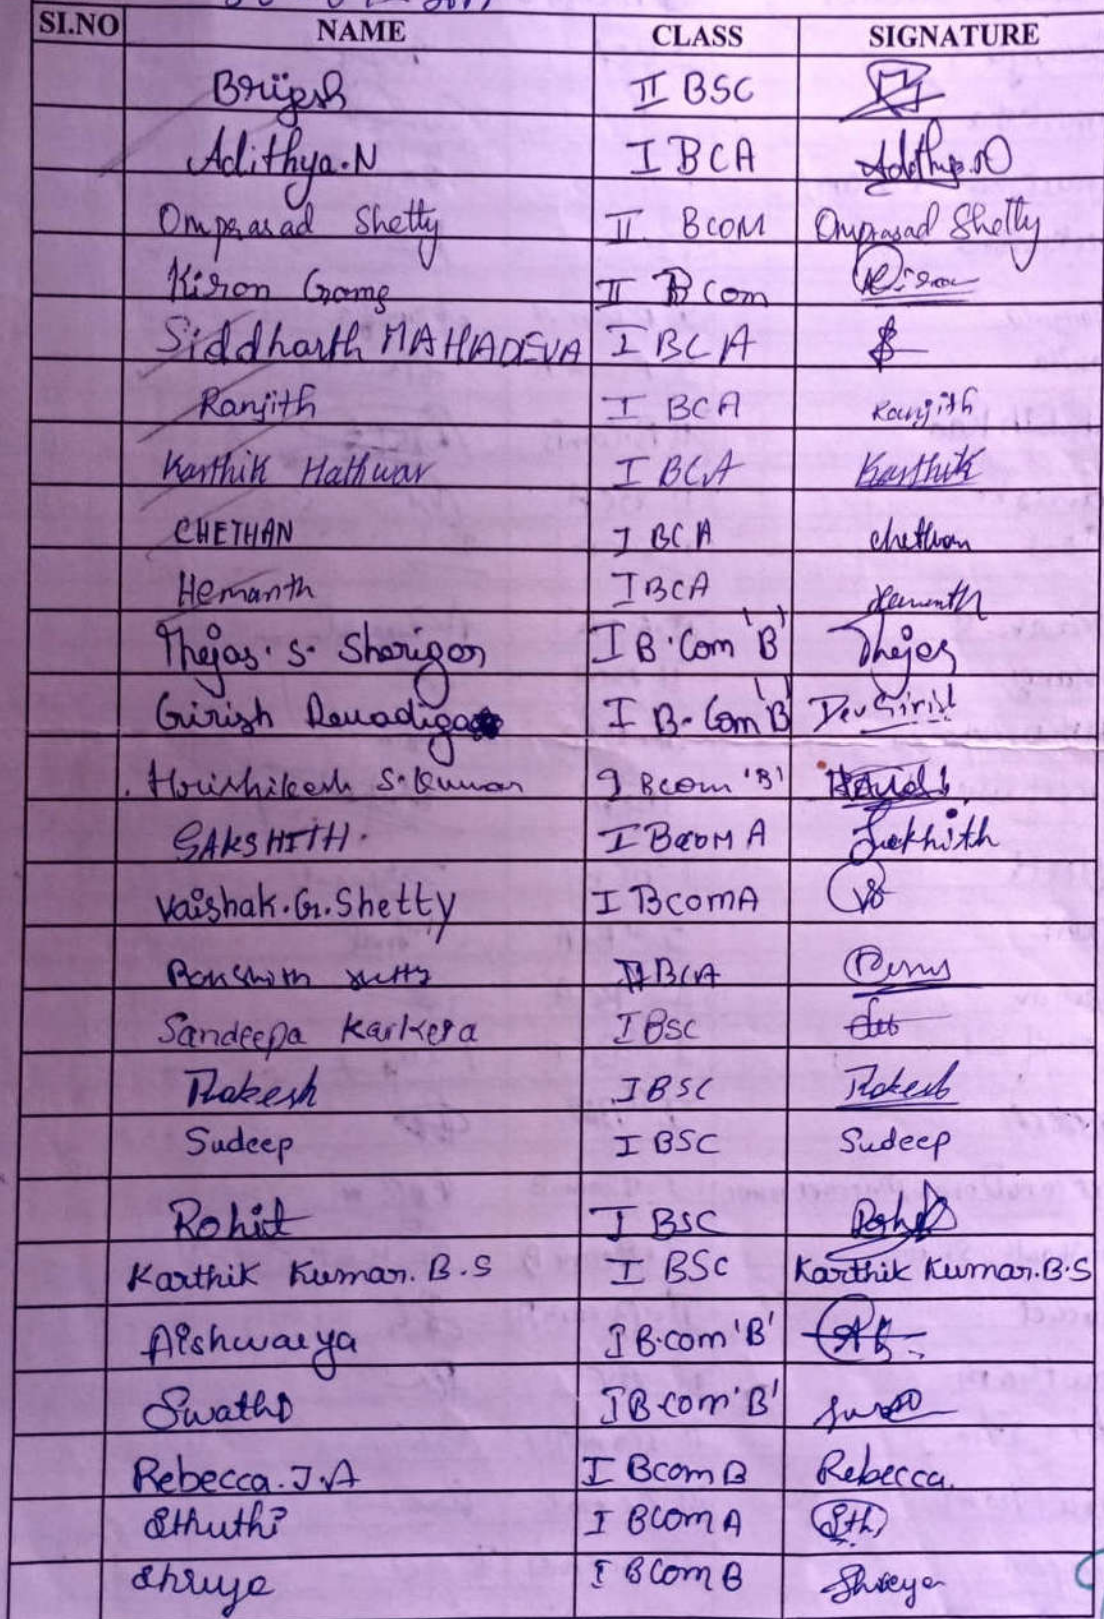 SI.NO NAME CLASS SIGNATURE
Brijesh II BSC
Adithya.N I BCA Adithya.N
Omprasad Shetty II BCOM Omprasad Shetty
Kiron Gomes II B com Kiron
Siddharth MAHADEVA I BCA
Ranjith I BCA Ranjith
Karthik Hathwar I BCA Karthik
CHETHAN I BCA chethan
Hemanth I BCA Hemanth
Thejas. S. Sherigar I B.Com 'B' Thejas
Girish Devadiga I B.Com 'B' Dev Girish
Hrishikesh S. Kumar I Bcom 'B'
SAKSHITH. I BCOM A Sakhith
Vaishak.G.Shetty I BCOMA VS
II BCA
Sandeepa Karkera I BSC
Rakesh I BSC Rakesh
Sudeep I BSC Sudeep
Rohit I BSC Rohit
Karthik Kumar. B.S I BSC Karthik Kumar.B.S
Aishwarya I B.com 'B'
Swathi I B.com 'B'
Rebecca. J.A I Bcom B Rebecca.
Sthuthi I BCOM A Sth
Shreya I BCOM B Shreya